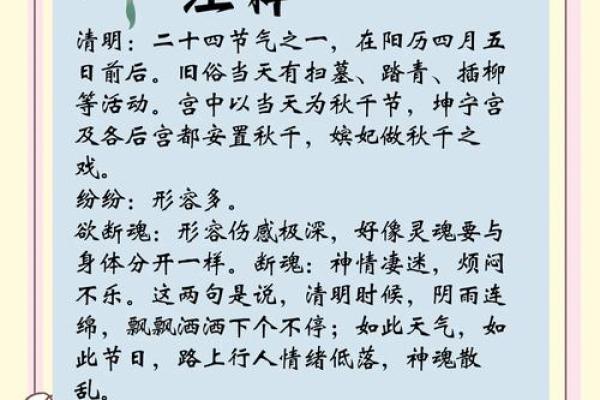 注释
清明：二十四节气之一，在阳历四月五
日前后。旧俗当天有扫墓、踏青、插柳
等活动。宫中以当天为秋千节，坤宁宫
及各后宫都安置秋千，嫔妃做秋千之
戏。
纷纷：形容多。
欲断魂：形容伤感极深，好像灵魂要与
身体分开一样。断魂：神情凄迷，烦闷
不乐。这两句是说，清明时候，阴雨连
绵，飘飘洒洒下个不停；如此天气，如
此节日，路上行人情绪低落，神魂散
乱。